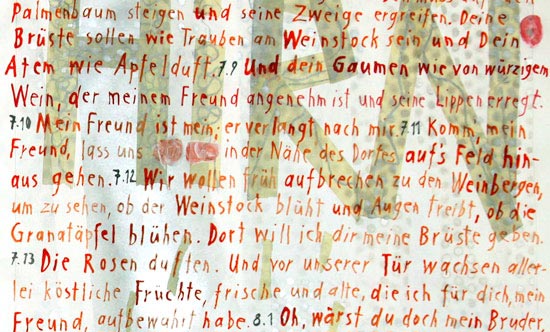 Palmenbaum steigen und seine Zweige ergreifen. Deine
Brüste sollen wie Trauben am Weinstock sein und Dein
Atem wie Apfelduft. 7.9 Und dein Gaumen wie von würzigem
Wein, der meinem Freund angenehm ist und seine Lippen erregt.
7.10 Mein Freund ist mein, er verlangt nach mir. 7.11 Komm, mein
Freund, lass uns in der Nähe des Dorfes auf's Feld hin-
aus gehen. 7.12 Wir wollen früh aufbrechen zu den Weinbergen,
um zu sehen, ob der Weinstock blüht und Augen treibt, ob die
Granatäpfel blühen. Dort will ich dir meine Brüste geben.
7.13 Die Rosen duften. Und vor unserer Tür wachsen aller-
lei köstliche Früchte, frische und alte, die ich für dich, mein
Freund, aufbewahrt habe. 8.1 Oh, wärst du doch mein Bruder